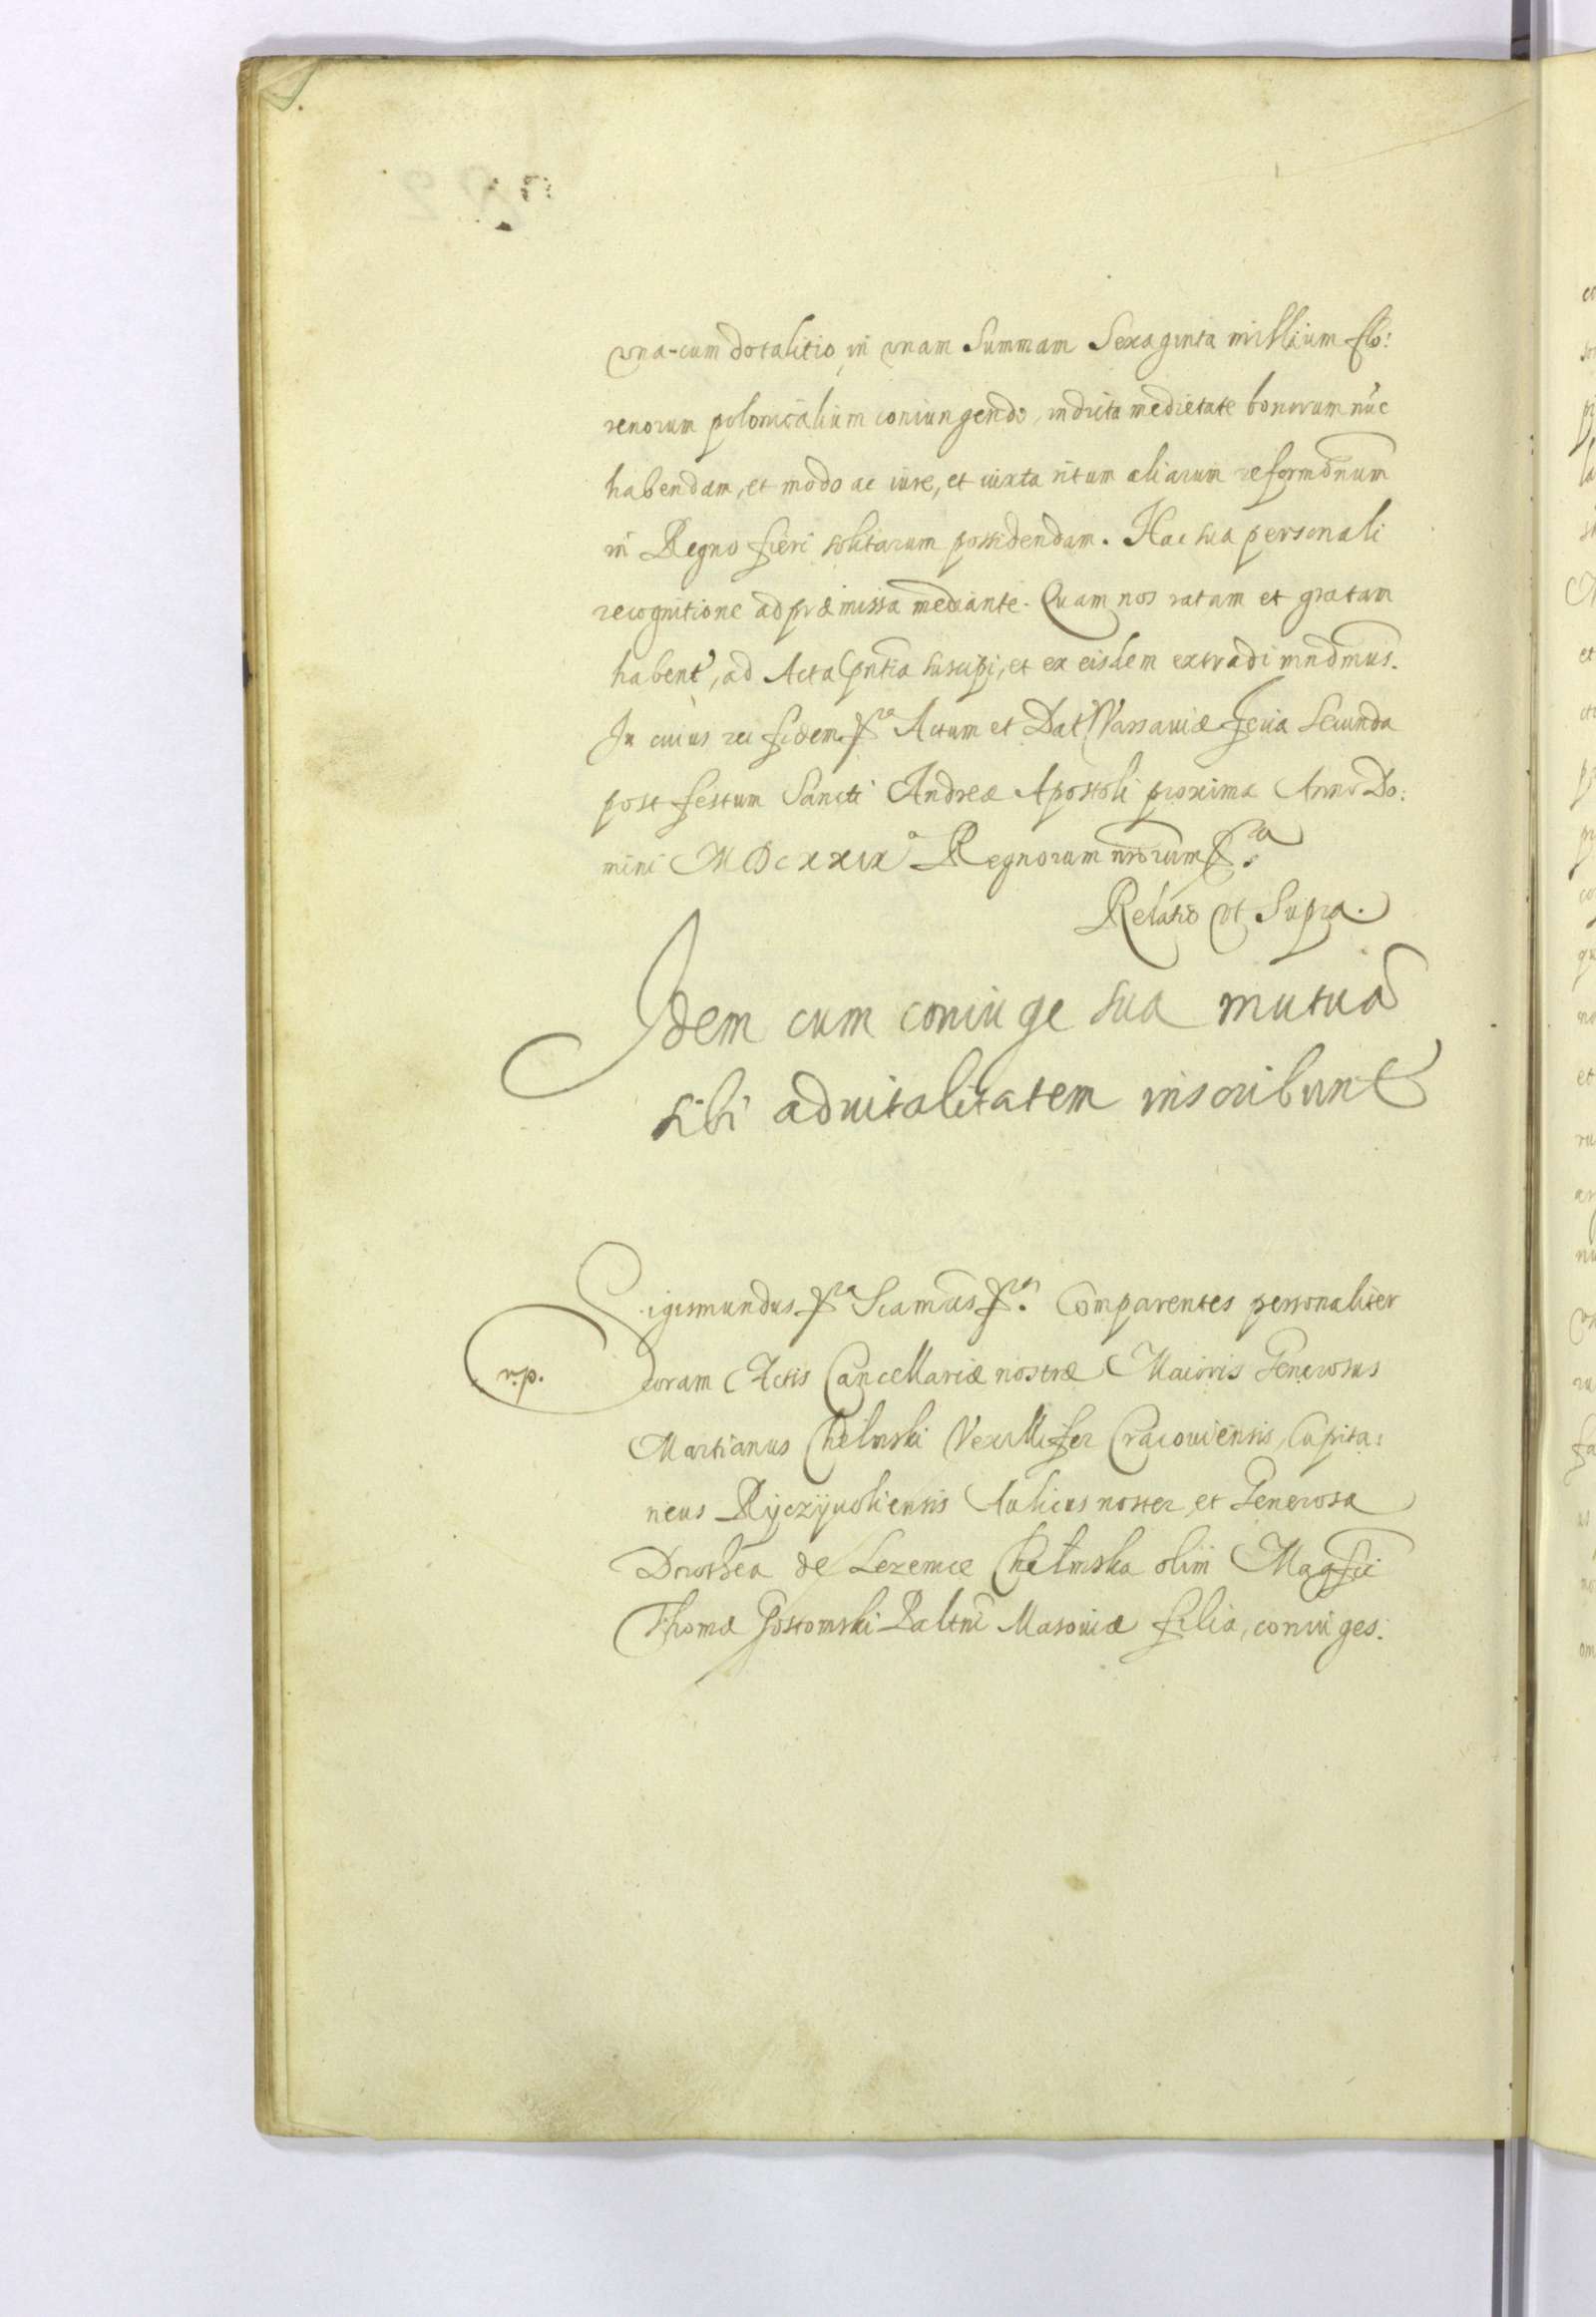 vna-cum dotalitio, in vnam Summam Sexaginta millium flo:
renorum polonicalium coniungendo, in dicta medietate bonorum nūc
habendam, et modo ac iure, et iuxta ritum aliarum reformōnum
in Regno fieri solitarum possidendam. Hac sua personali
recognitione ad præmissa mediante. Quam nos ratam et gratam
habent, ad Acta pn̄tia suscipi, et ex eisdem extradi mn̄dmus.
In cuius rei fidem &ra Actum et Dat Varsauiæ feria Secunda
post festum Sancti Andreæ Apostoli proxima Anno Do:
mini MDCXXIXo Regnorum nrōrum &ra.
Relatio vt Supra.
Idem cum coniuge sua mutua
sibi aduitalitatem inscribunt
Sigismundus &ra Sciamūs &ra. Comparentes personaliter
r.p. coram Actis Cancellariæ nostræ Maioris Generosus
Martianus Chełmski Vexillifer Cracouiensis, Capita:
neus Ryczyuoliensis Aulicus noster, et Generosa
Dorothea de Lezenice Chełmska olim Magfci
Thomæ Gostomski Paltni Masouiæ filia, coniuges.